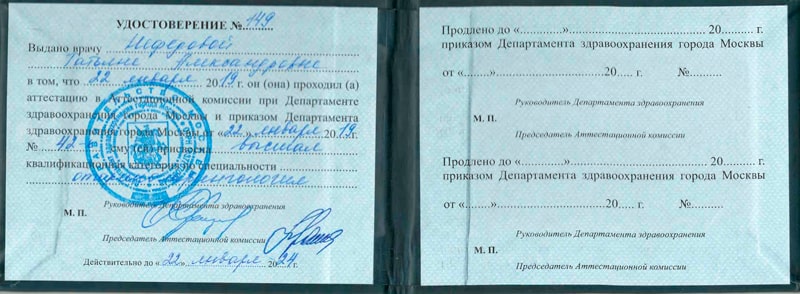 УДОСТОВЕРЕНИЕ № 149
Выдано врачу Неферовой
Татьяне Александровне
в том, что 22 января 2019г. он (она) проходил (а)
аттестацию в Аттестационной комиссии при Департаменте
здравоохранения города Москвы и приказом Департамента
здравоохранения города Москвы от «22» января 2019г.
№ 42- ему(ей) присвоена высшая
квалификационная категория по специальности
Руководитель Департамента здравоохранения
М. П.
Председатель Аттестационной комиссии
Действительно до «22» января 2024г.
Продлено до «............»........................... 20........ г.
приказом Департамента здравоохранения города Москвы
от «........»..................... 20........ г. №..........
Руководитель Департамента здравоохранения
М. П.
Председатель Аттестационной комиссии
Продлено до «............»........................... 20........ г.
приказом Департамента здравоохранения города Москвы
от «........»..................... 20........ г. №..........
Руководитель Департамента здравоохранения
М. П.
Председатель Аттестационной комиссии